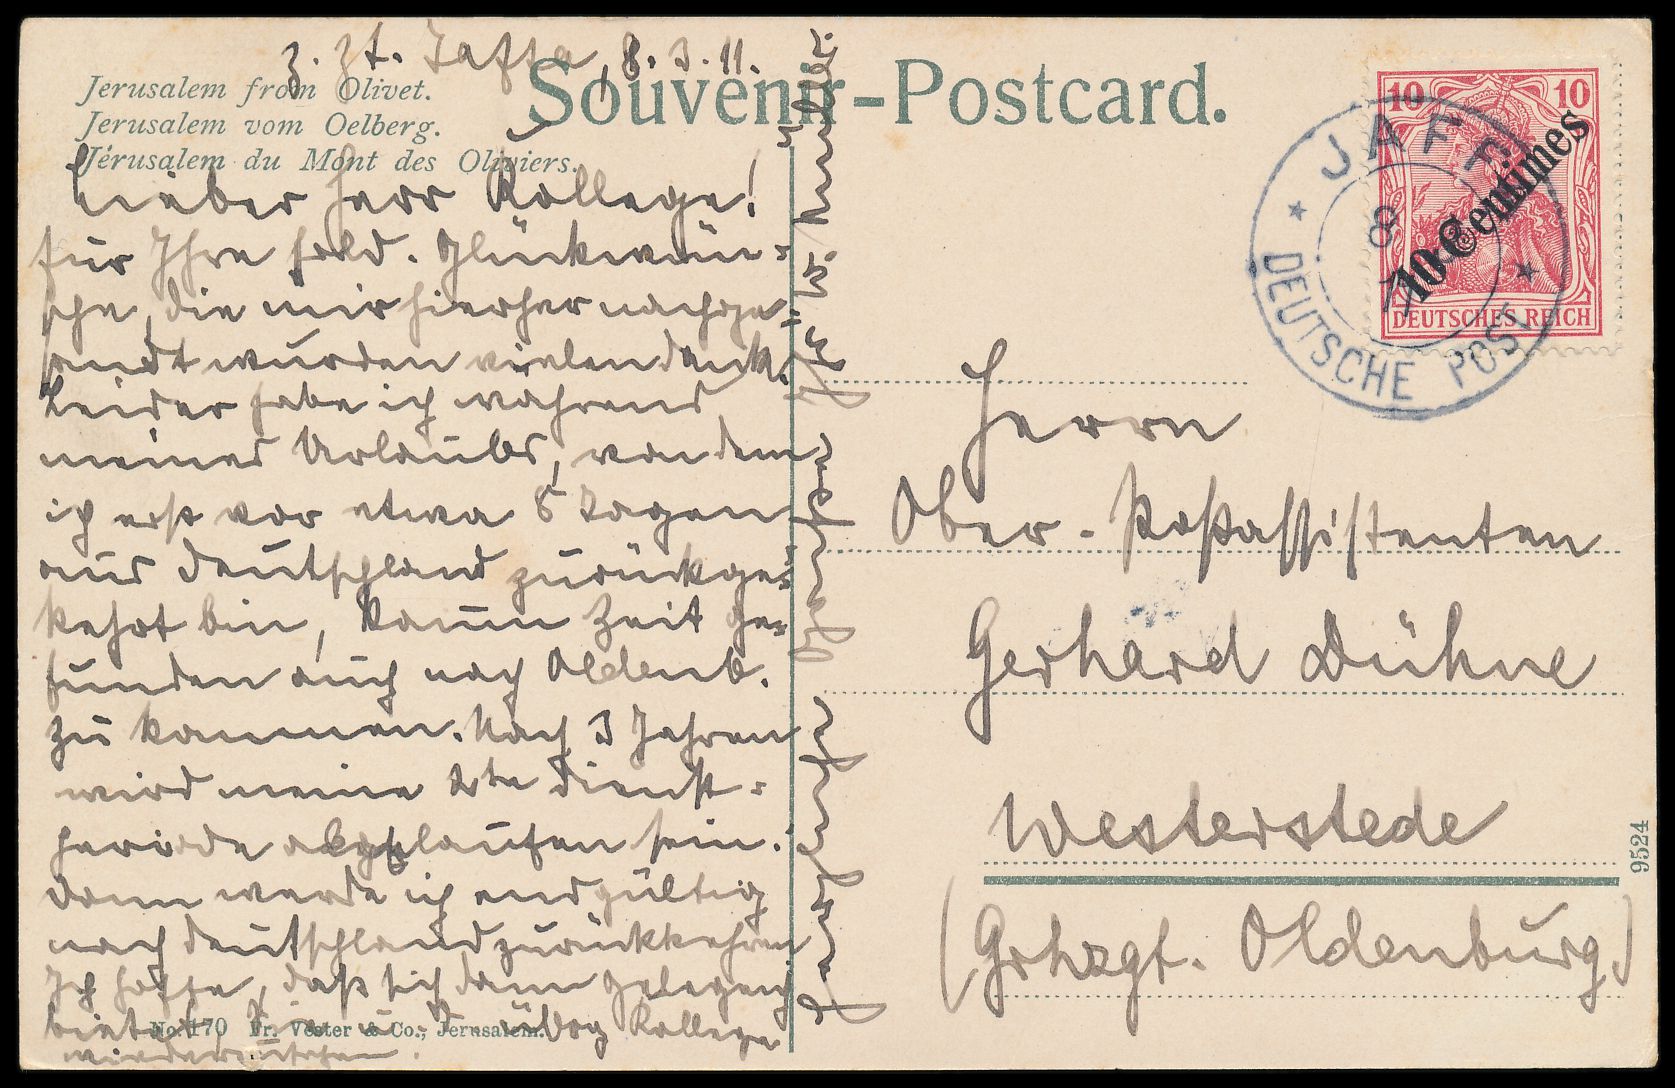 z. Zt. Jaffa, 8.3.11.
Jerusalem from Olivet.
Jerusalem vom Oelberg.
Jérusalem du Mont des Oliviers.
Souvenir-Postcard.
Lieber Herr Kollege!
für Ihre frdl. Glückwün-
sche, die mir hierher nachge-
sandt wurden vielen Dank.
Leider habe ich während
meines Urlaubs, von dem
ich erst vor etwa 8 Tagen
aus Deutschland zurückge-
kehrt bin, kaum Zeit ge-
funden auch nach Oldenb.
zu kommen. Nach 3 Jahren
wird meine 2te Dienst-
periode abgelaufen sein.
Dann werde ich endgültig
nach Deutschland zurückkehren
Ich hoffe, daß sich dann
Kollege
No. 170 Fr. Vester & Co., Jerusalem.
10 10
10 Centimes
DEUTSCHES REICH
JAFFA
8
3
11
DEUTSCHE POST
Herrn
Ober-Postassistenten
Gerhard Dühne
Westerstede
(Grhzgt. Oldenburg)
9524